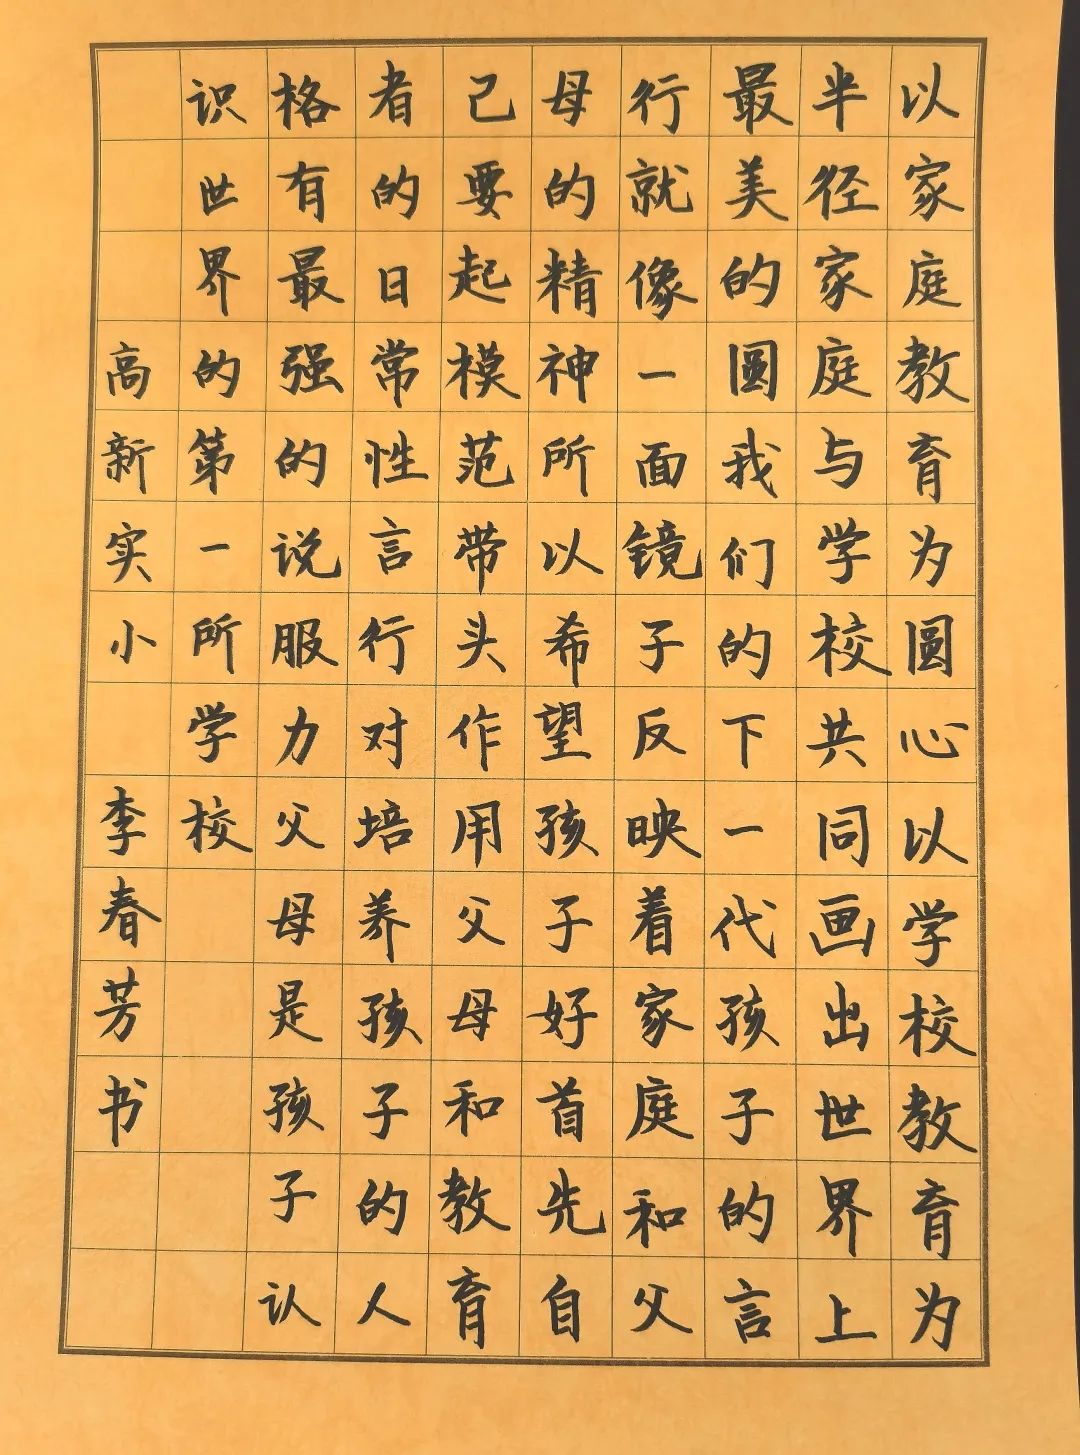 以家庭教育为圆心以学校教育为
半径家庭与学校共同画出世界上
最美的圆我们的下一代孩子的言
行就像一面镜子反映着家庭和父
母的精神所以希望孩子好首先自
己要起模范带头作用父母和教育
者的日常性言行对培养孩子的人
格有最强的说服力父母是孩子认
识世界的第一所学校
高新实小 李春芳书